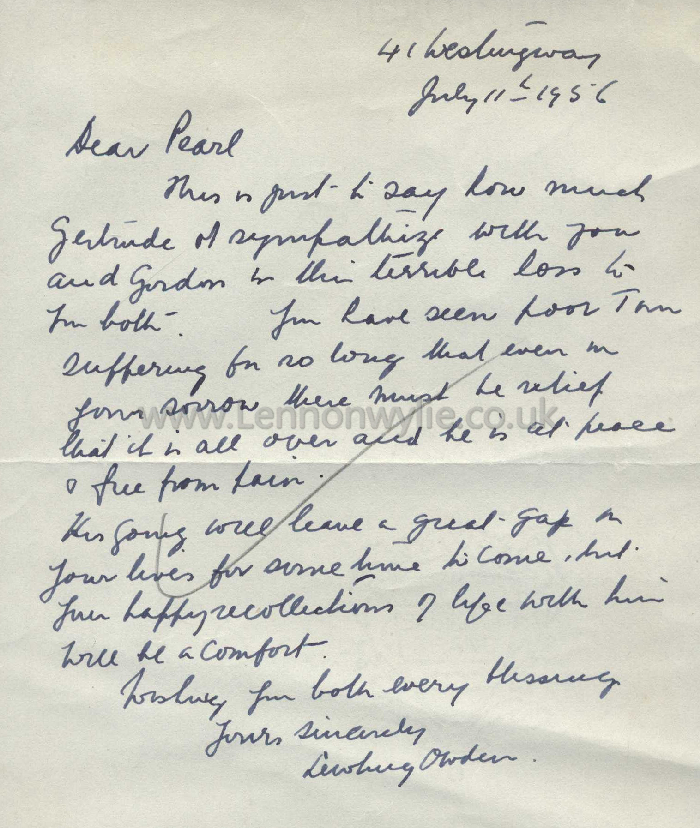 41
July 11th 1956
Dear Pearl
This is just to say how much
Gertrude & I sympathize with you
and Gordon in this terrible loss to
you both. You have seen poor Tom
suffering for so long that even in
your sorrow there must be relief
www.Lennonwylie.co.uk
that it is all over and he is at peace
& free from pain.
His going will leave a great gap in
your lives for some time to come, but
your happy recollections of life with him
will be a comfort.
Wishing you both every blessing
Yours sincerely